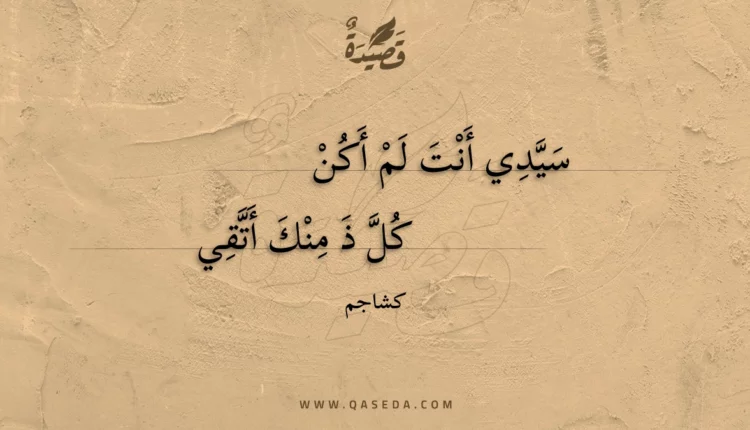 قَصِيدَةٌ
سَيَّدِي أَنْتَ لَمْ أَكُنْ
كُلَّ ذَ مِنْكَ أَتَّقِي
كشاجم
WWW.QASEDA.COM